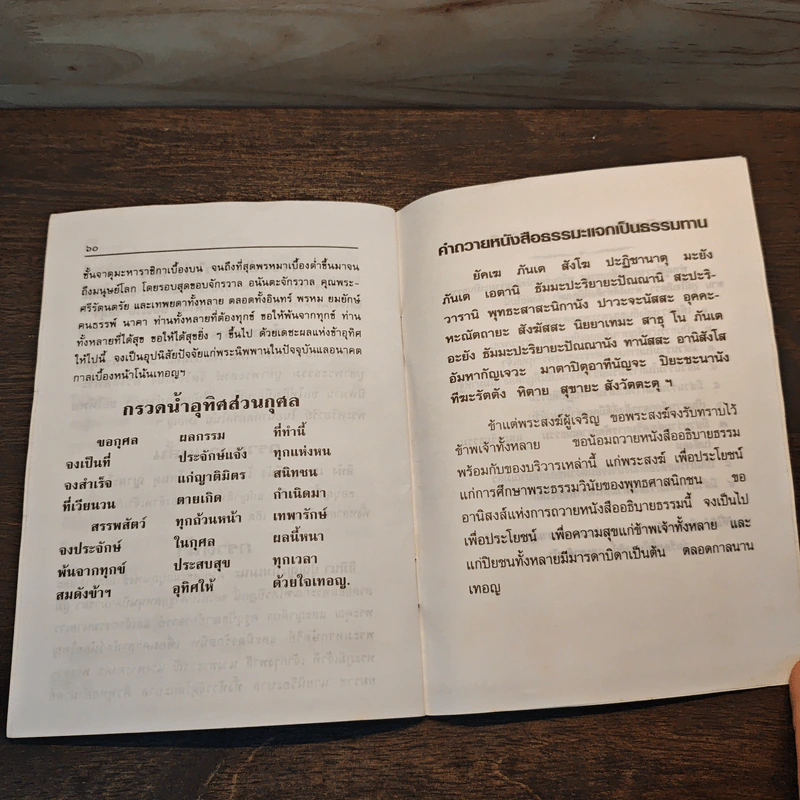 ๖๐
ชั้นจาตุมะหาราชิกาเบื้องบน จนถึงที่สุดพรหมาเบื้องต่ำขึ้นมาจน
ถึงมนุษย์โลก โดยรอบสุดขอบจักรวาล อนันตะจักรวาล คุณพระ-
ศรีรัตนตรัย และเทพยดาทั้งหลาย ตลอดทั้งอินทร์ พรหม ยมยักษ์
คนธรรพ์ นาคา ท่านทั้งหลายที่ต้องทุกข์ ขอให้พ้นจากทุกข์ ท่าน
ทั้งหลายที่ได้สุข ขอให้ได้สุขยิ่ง ๆ ขึ้นไป ด้วยเดชะผลแห่งข้าอุทิศ
ให้ไปนี้ จงเป็นอุปนิสัยปัจจัยแก่พระนิพพานในปัจจุบันแลอนาคต
กาลเบื้องหน้าโน้นเทอญฯ
กรวดน้ำอุทิศส่วนกุศล
ขอกุศล ผลกรรม ที่ทำนี้
จงเป็นที่ ประจักษ์แจ้ง ทุกแห่งหน
จงสำเร็จ แก่ญาติมิตร สนิทชน
ที่เวียนวน ตายเกิด กำเนิดมา
สรรพสัตว์ ทุกถ้วนหน้า เทพารักษ์
จงประจักษ์ ในกุศล ผลนี้หนา
พ้นจากทุกข์ ประสบสุข ทุกเวลา
สมดังข้าฯ อุทิศให้ ด้วยใจเทอญ.
คำถวายหนังสือธรรมะแจกเป็นธรรมทาน
ยัคเฆ ภันเต สังโฆ ปะฏิชานาตุ มะยัง
ภันเต เอตานิ ธัมมะปะริยายะปัณณานิ สะปะริ-
วารานิ พุทธะสาสะนิกานัง ปาวะจะนัสสะ อุคคะ-
หะณัตถายะ สังฆัสสะ นิยยาเทมะ สาธุ โน ภันเต
อะยัง ธัมมะปะริยายะปัณณานัง ทานัสสะ อานิสังโส
อัมหากัญเจวะ มาตาปิตุอาทีนัญจะ ปิยะชะนานัง
ทีฆะรัตตัง หิตายะ สุขายะ สังวัตตะตุ ฯ
ข้าแต่พระสงฆ์ผู้เจริญ ขอพระสงฆ์จงรับทราบไว้
ข้าพเจ้าทั้งหลาย ขอน้อมถวายหนังสืออธิบายธรรม
พร้อมกับของบริวารเหล่านี้ แก่พระสงฆ์ เพื่อประโยชน์
แก่การศึกษาพระธรรมวินัยของพุทธศาสนิกชน ขอ
อานิสงส์แห่งการถวายหนังสืออธิบายธรรมนี้ จงเป็นไป
เพื่อประโยชน์ เพื่อความสุขแก่ข้าพเจ้าทั้งหลาย และ
แก่ปิยชนทั้งหลายมีมารดาบิดาเป็นต้น ตลอดกาลนาน
เทอญ